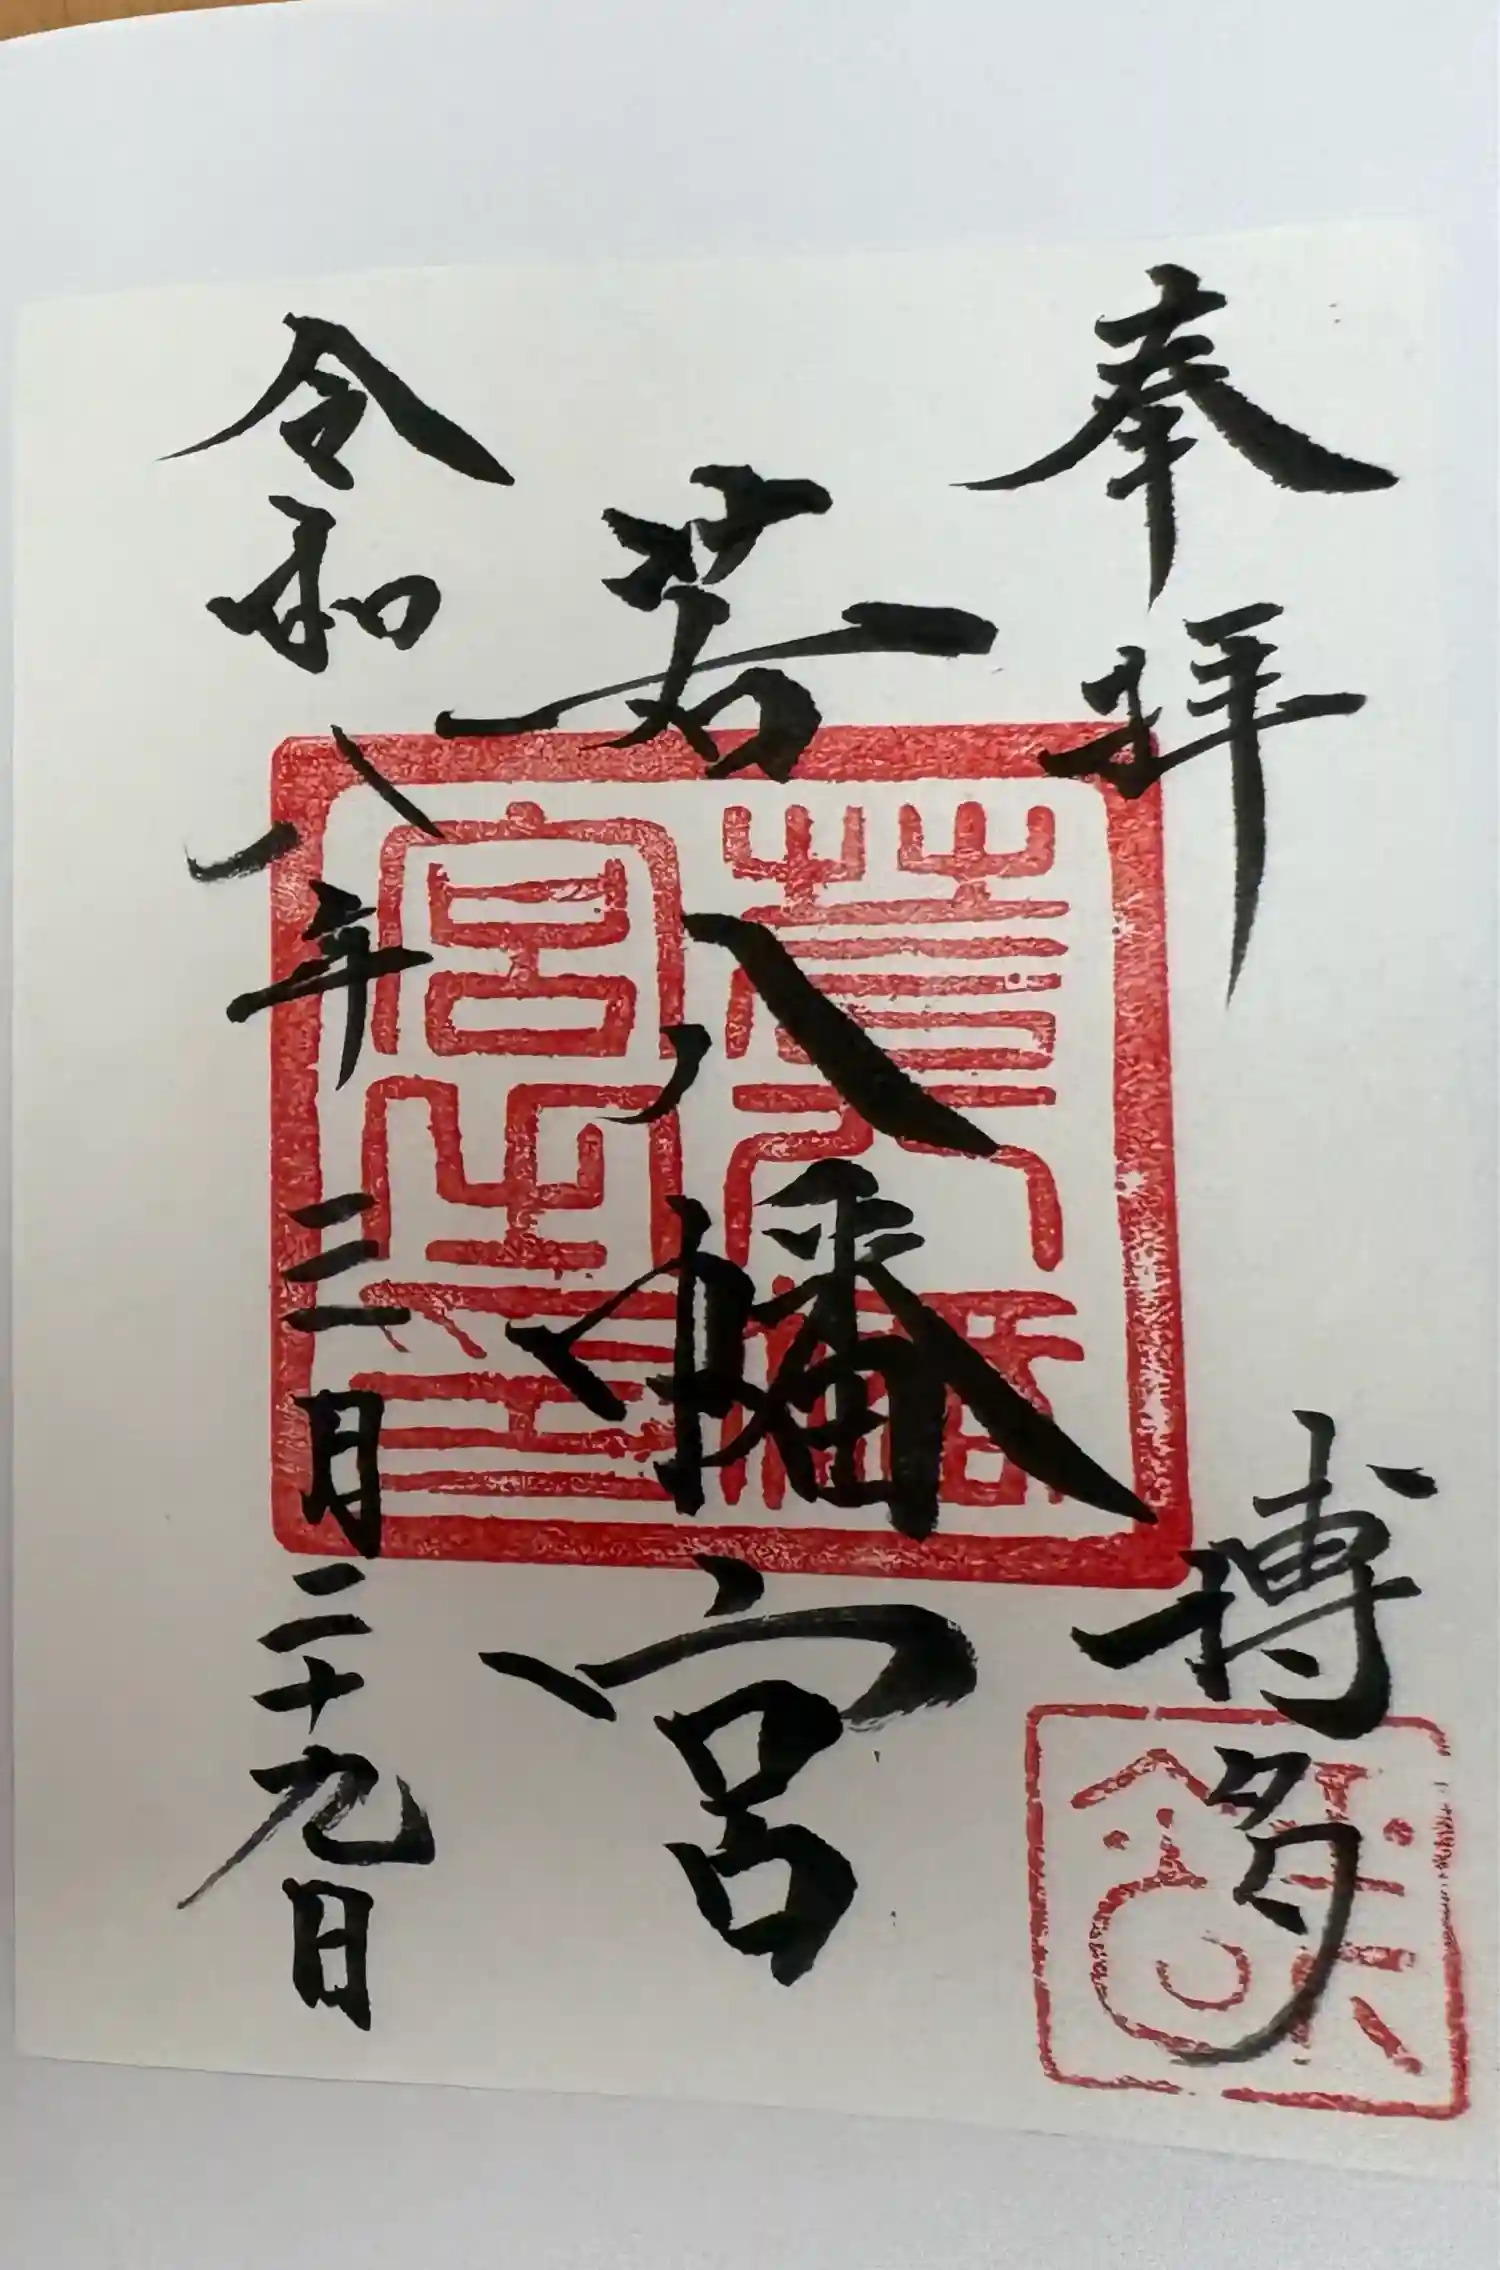 奉拝
博多
若八幡宮
令和八年三月二十九日
若八幡
宮之印